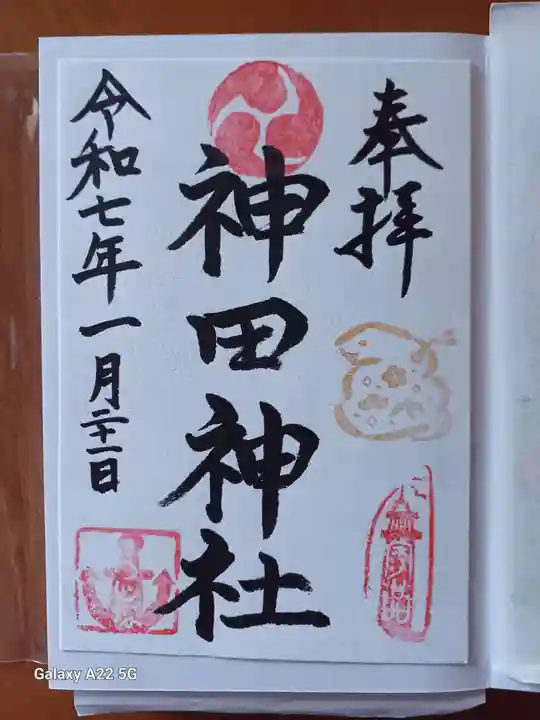 奉拝
神田神社
令和七年一月二十一日
Galaxy A22 5G